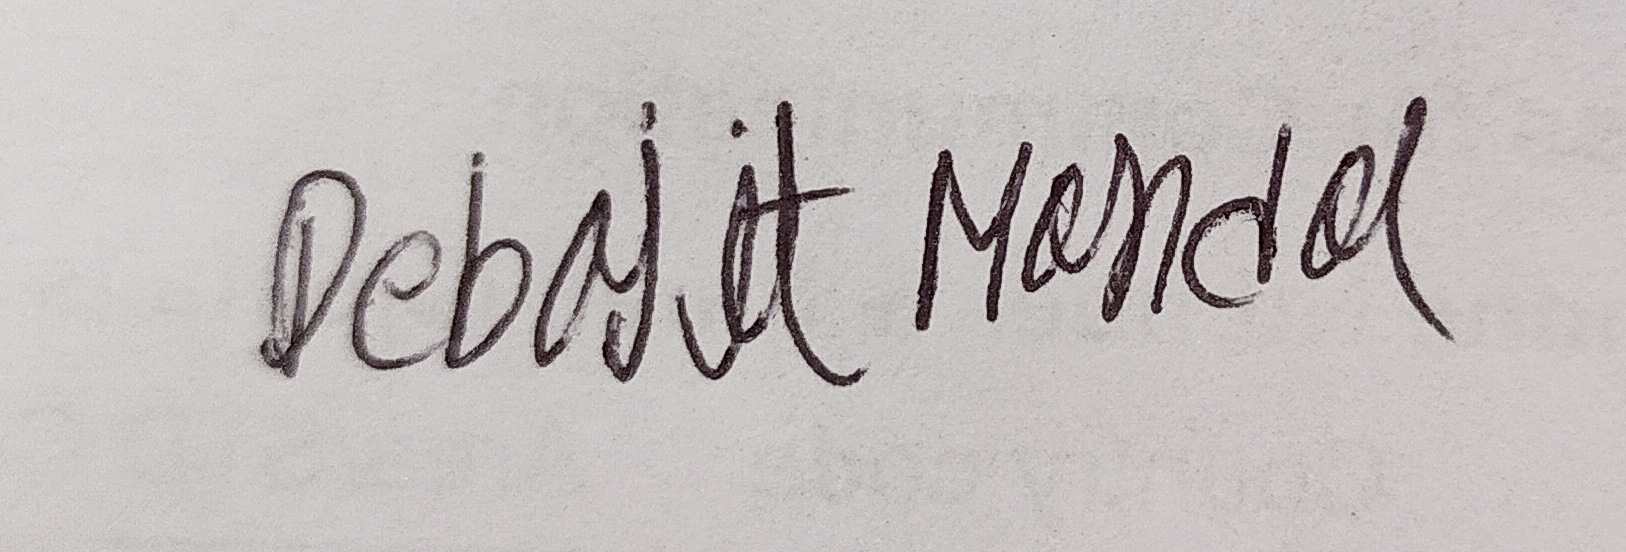 Debajit Mandal